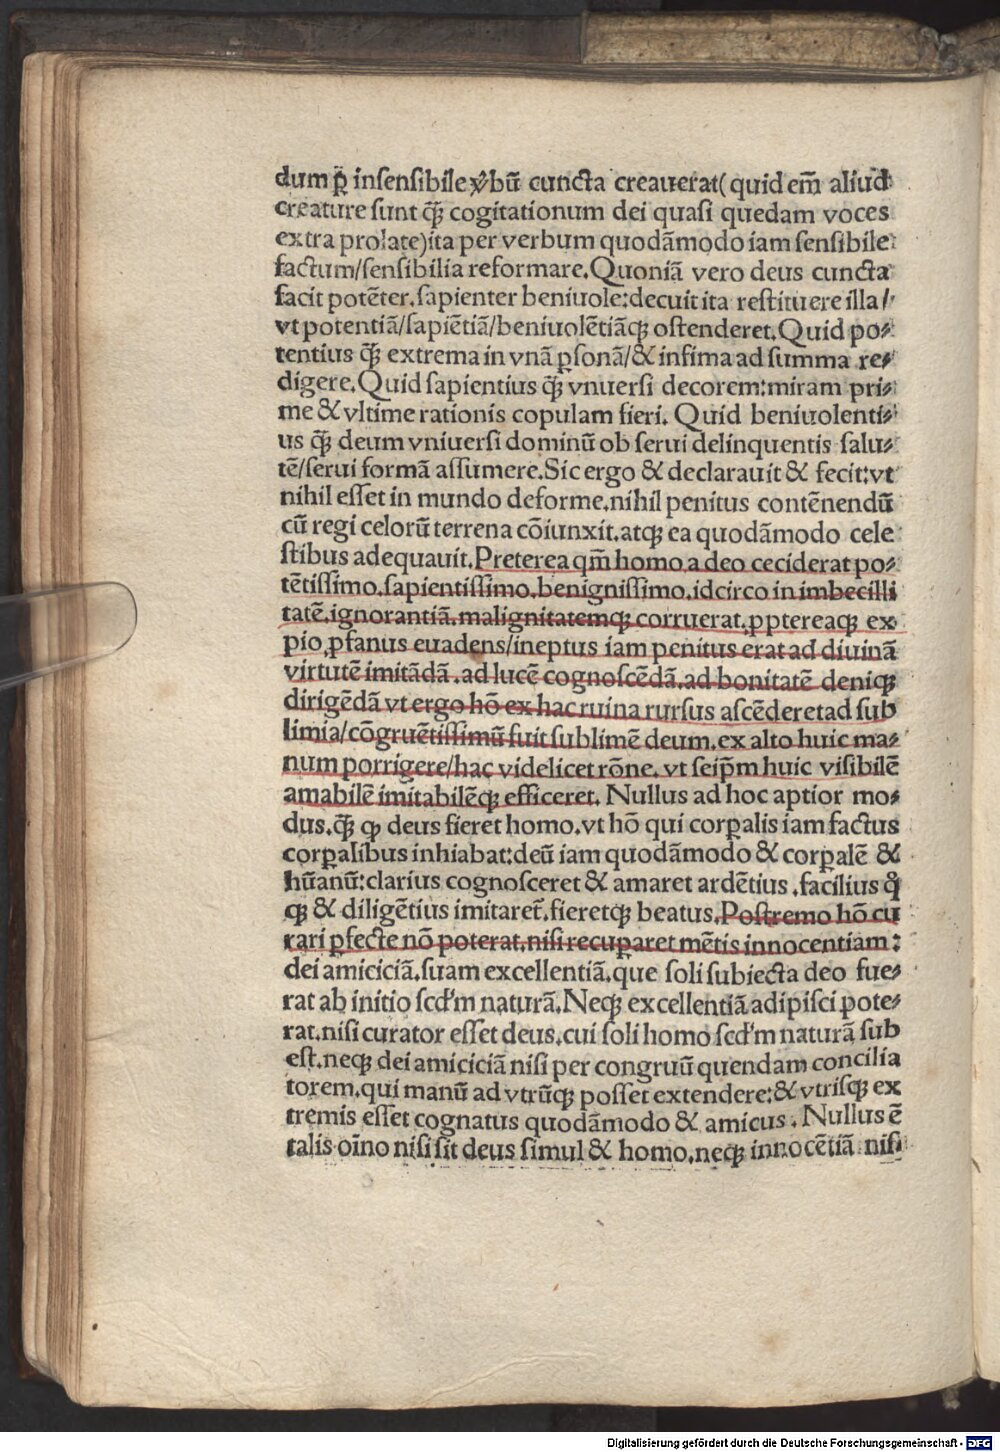 dum p̲ insensibile v̓bū cuncta creauerat(quid em̄ aliud
creature sunt q̄ꝫ cogitationum dei quasi quedam voces
extra prolate)ita per verbum quodāmodo iam sensibile
factum/sensibilia reformare.Quoniā vero deus cuncta
facit potēter.sapienter beniuole:decuit ita restituere illa/
vt potentiā/sapiētiā/beniuolētiāqꝫ ostenderet.Quid po⸗
tentius q̄ꝫ extrema in vnā ꝑsonā/& infima ad summa re⸗
digere.Quid sapientius q̄ꝫ vnuersi decorem:miram pri⸗
me & vltime rationis copulam fieri. Quid beniuolenti⸗
us q̄ꝫ deum vniuersi dominū ob serui delinquentis salu⸗
tē/serui formā assumere.Sic ergo & declarauit & fecit:vt
nihil esset in mundo deforme.nihil penitus contēnendū
cū regi celorū terrena cōiunxit.atqꝫ ea quodāmodo cele
stibus adequauit.Preterea qm̄ homo a deo ceciderat po⸗
tētissimo.sapientissimo.benignissimo.idcirco in imbecilli
tatē.ignorantiā.malignitatemqꝫ corruerat.ꝓptereaqꝫ ex
pio ꝓfanus euadens/ineptus iam penitus erat ad diuinā
virtutē imitādā .ad lucē cognoscēdā.ad bonitatē deniqꝫ
dirigēdā vt ergo hō ex hac ruina rursus ascēderet ad sub
limia/cōgruētissimū fuit sublimē deum.ex alto huic ma⸗
num porrigere/hac videlicet rōne. vt seip̄m huic visibilē
amabilē imitabilēqꝫ efficeret. Nullus ad hoc aptior mo⸗
dus.q̄ꝫ ꝙ deus fieret homo.vt hō qui corꝑalis iam factus
corꝑalibus inhiabat:deū iam quodāmodo & corꝑalē &
hūanū:clarius cognosceret & amaret ardētius .facilius q̊
qꝫ & diligētius imitaret̄.fieretqꝫ beatus.Postremo hō cu
rari ꝑfecte nō poterat.nisi recuꝑaret mētis innocentiam:
dei amiciciā.suam excellentiā.que soli subiecta deo fue⸗
rat ab initio scd'm naturā.Neqꝫ excellentiā adipisci pote⸗
rat.nisi curator esset deus.cui soli homo scd'm naturā sub
est.neqꝫ dei amiciciā nisi per congruū quendam concilia
torem.qui manū ad vtrūqꝫ posset extendere:& vtrisqꝫ ex
tremis esset cognatus quodāmodo & amicus. Nullus ē
talis oīno nisi sit deus simul & homo.neqꝫ innocētiā nisi
Digitalisierung gefördert durch die Deutsche Forschungsgemeinschaft - DFG